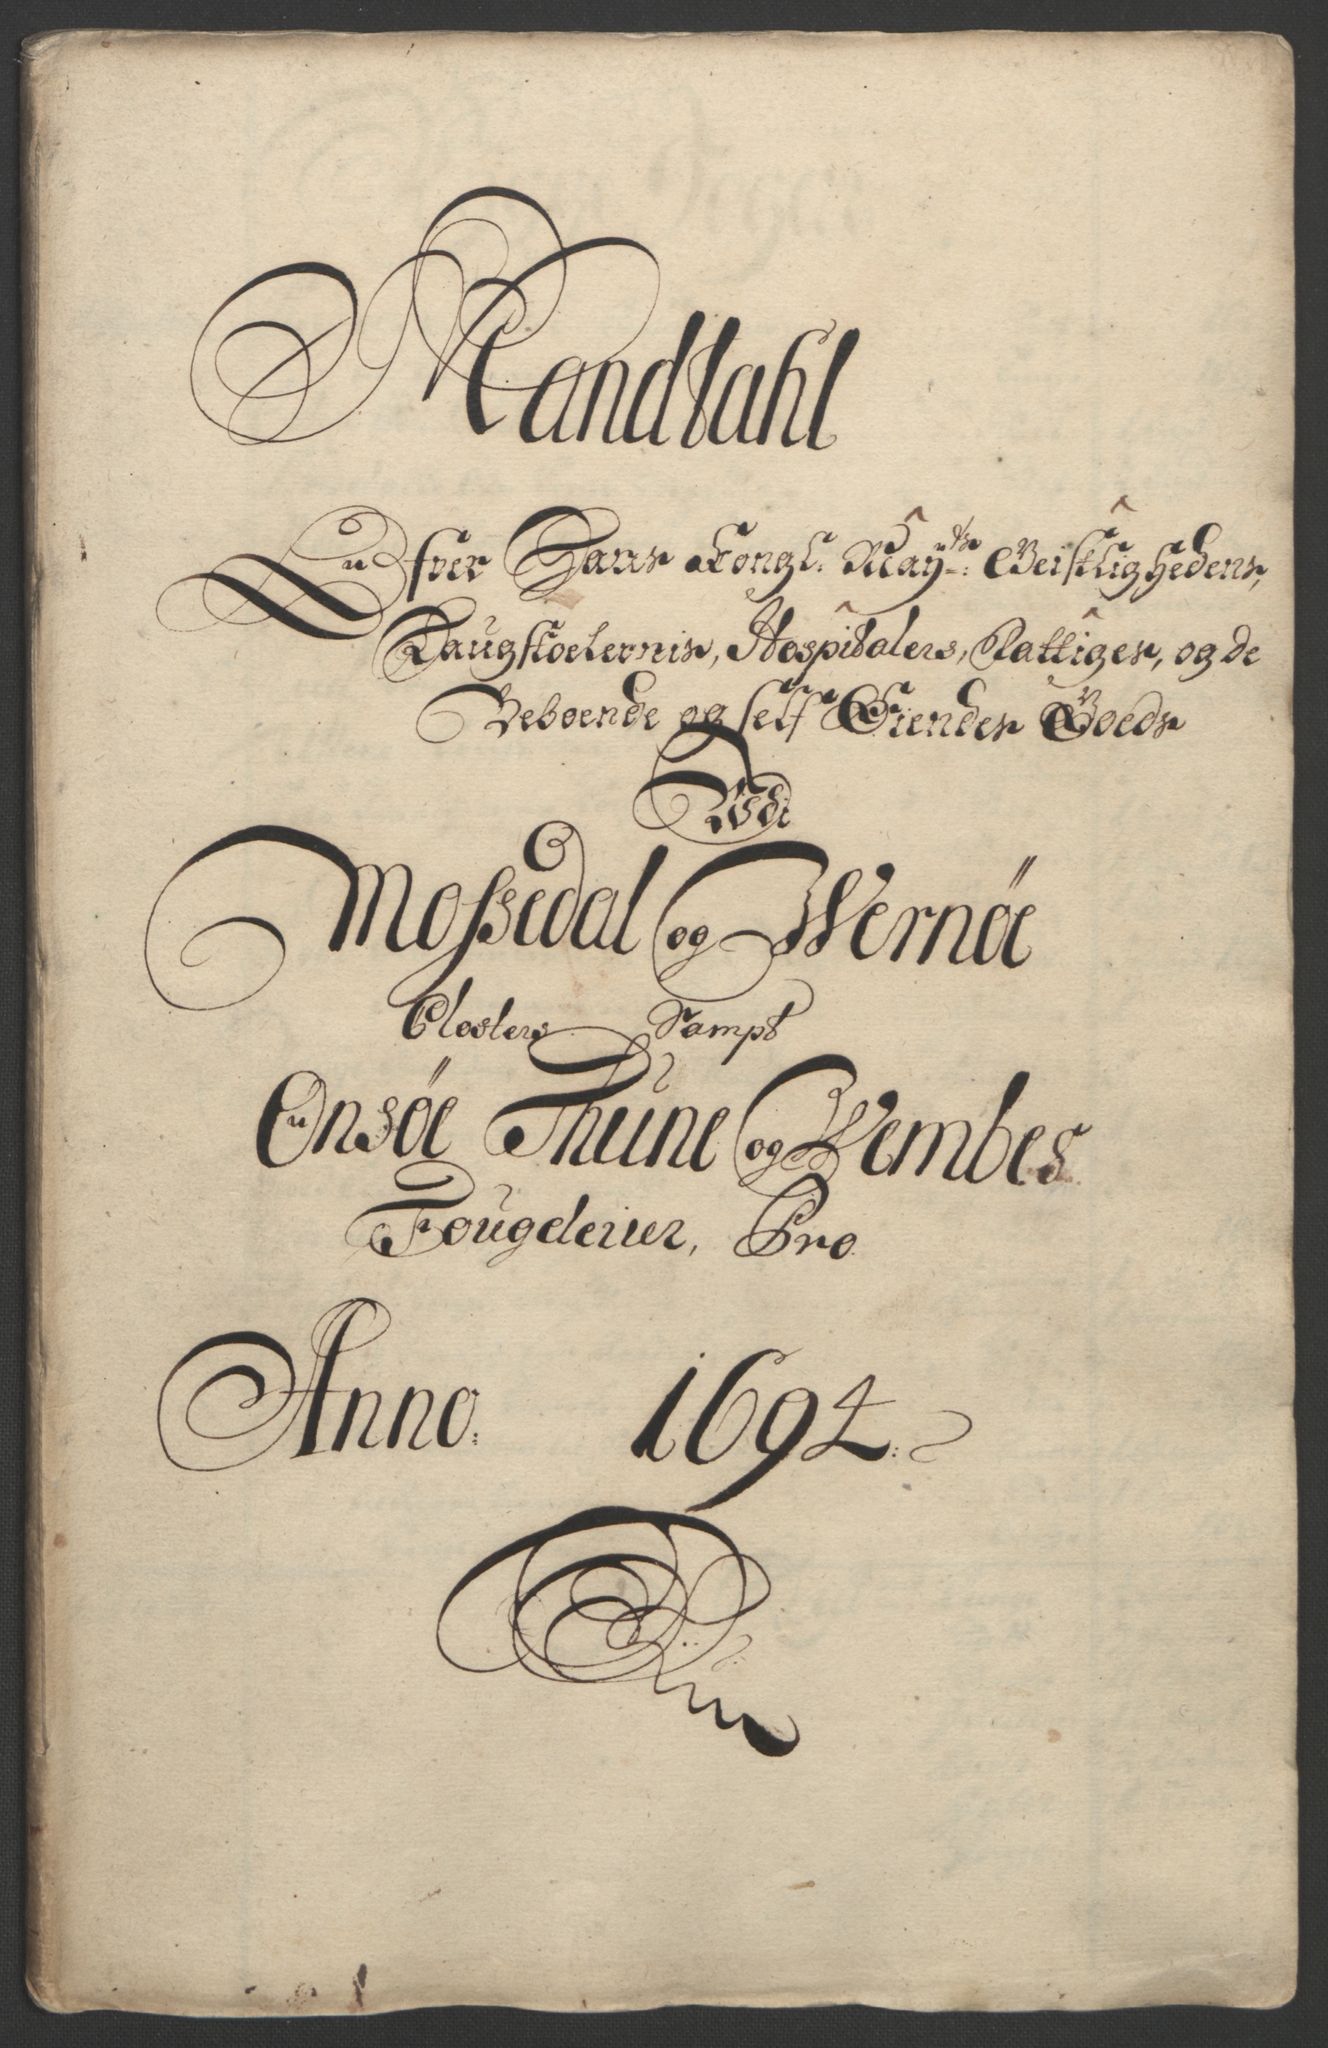 Mandtahl
Ofver Hans Kongl: May:ts: Geistlighedens,
Laugstoelernis, Hospitalers, Fattiges, og de
Beboende og Self Eiendes Goeds
Udi
Mossedal og Wernöe
Closters Sampt
Onsöe Thune og Wembes
Fougderier, Pro
Anno: 1694: